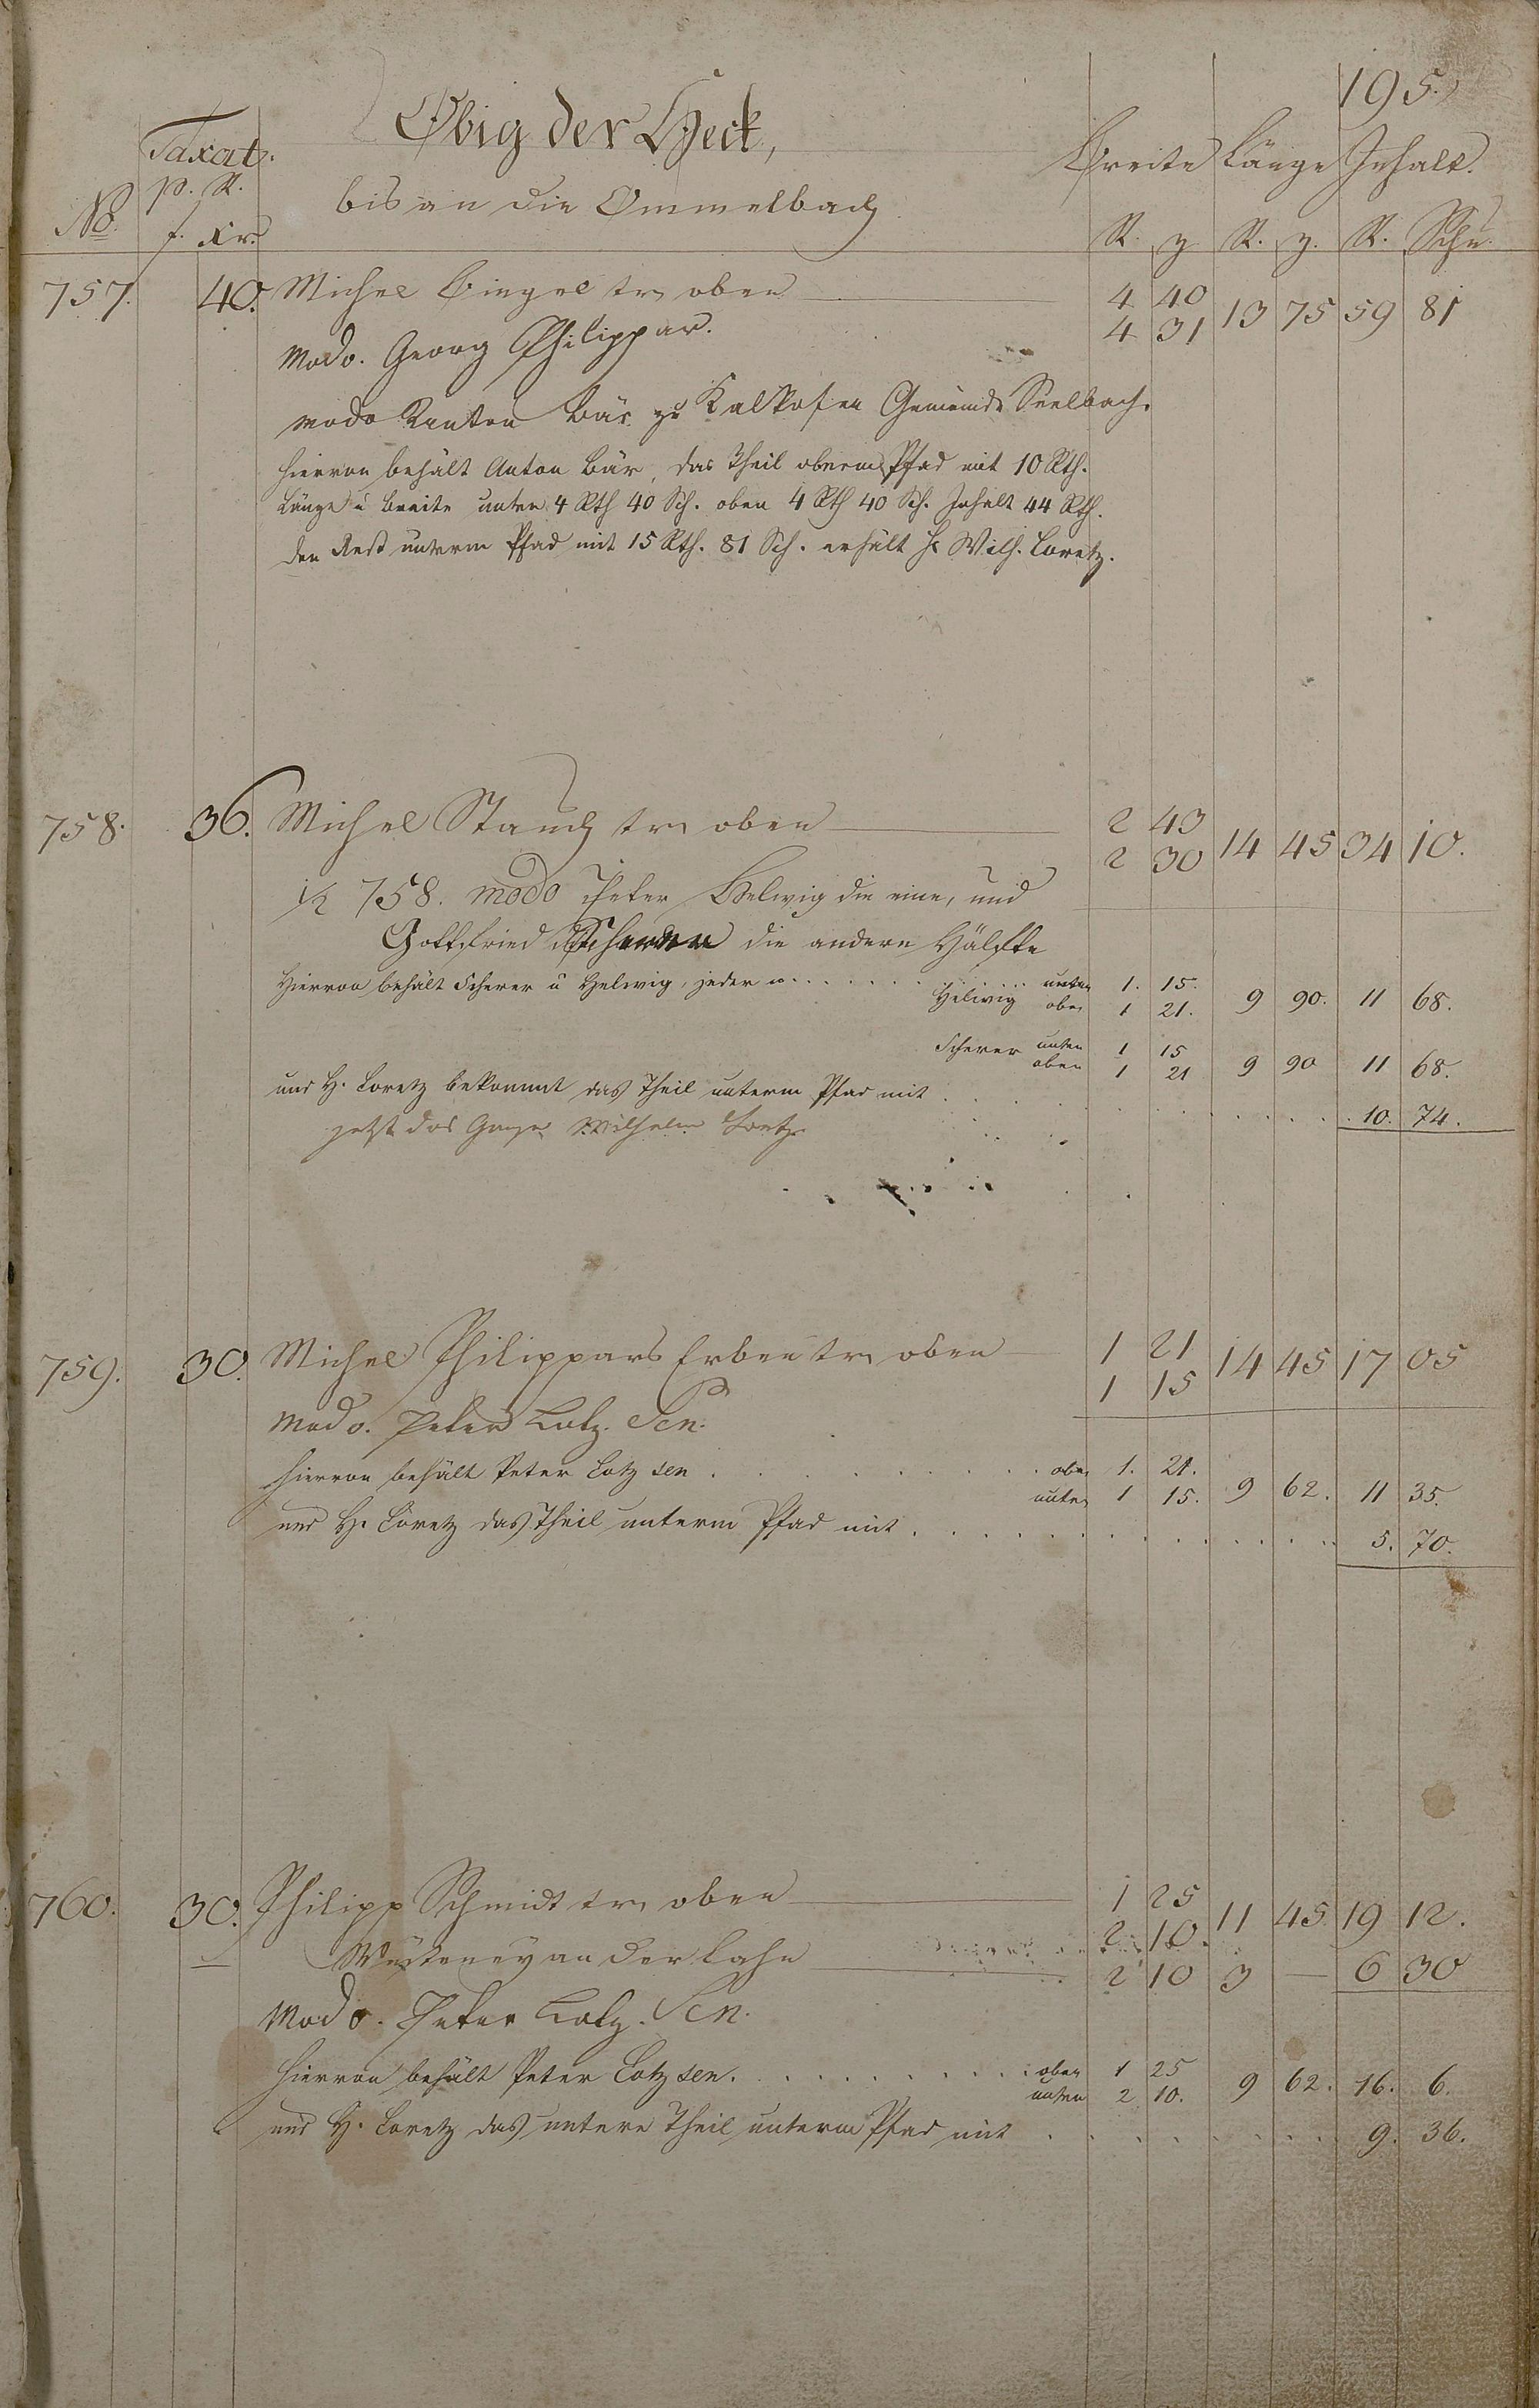 195.
Obig der Heck,
Taxat.
p. R.
Breite Länge Inhalt.
bis an die Ommelbach
No. f. Xr. R. z. R. z. R. Schu.
757. 40. Michel Bingel tr oben 4 40 13 75 59 81
4 31
Modo. Georg Philippar.
modo Anton Bär zu Kalkofen Gemeinde Seelbach.
hiervon behält Anton Bär, das Theil oberm Pfad mit 10 Rth.
Länge u Breite unten 4 Rth 40 Sch. oben 4 Rth 40 Sch. Inhalt 44 Rth.
den Rest unterm Pfad mit 15 Rth. 81 Sch. erhält H Wilh. Loretz.
758. 36. Michel Stauch tr oben 2 43 14 45 34 10.
2 30
1/2 758. modo Peter Helwig die eine, und
Gottfried Scherer die andere Hälfte
Hiervon behält Scherer u Helwig, jeder unten 1. 15. 9 90. 11 68.
Helwig oben 1 21.
Scherer unten 1 15 9 90 11 68.
oben 1 21
und H. Loretz bekommt das Theil unterm Pfad mit 10. 74.
jetzt das Ganze Wilhelm Loretz
759. 30. Michel Philippars Erben tr oben 1 21 14 45 17 05
1 15
Modo. Peter Lotz. Sen.
hiervon behält Peter Lotz sen oben 1. 21. 9 62. 11 35.
unten 1 15.
und H. Loretz das Theil unterm Pfad mit 5. 70.
760. 30. Philipp Schmidt tr oben 1 25 11 45 19 12.
2 10.
Wüsteney an der Lahn 2 10 3 — 6 30
Modo. Peter Lotz. Sen.
hiervon behält Peter Lotz sen. oben 1 25 9 62. 16. 6.
unten 2 10.
und H. Loretz das untere Theil unterm Pfad mit 9. 36.